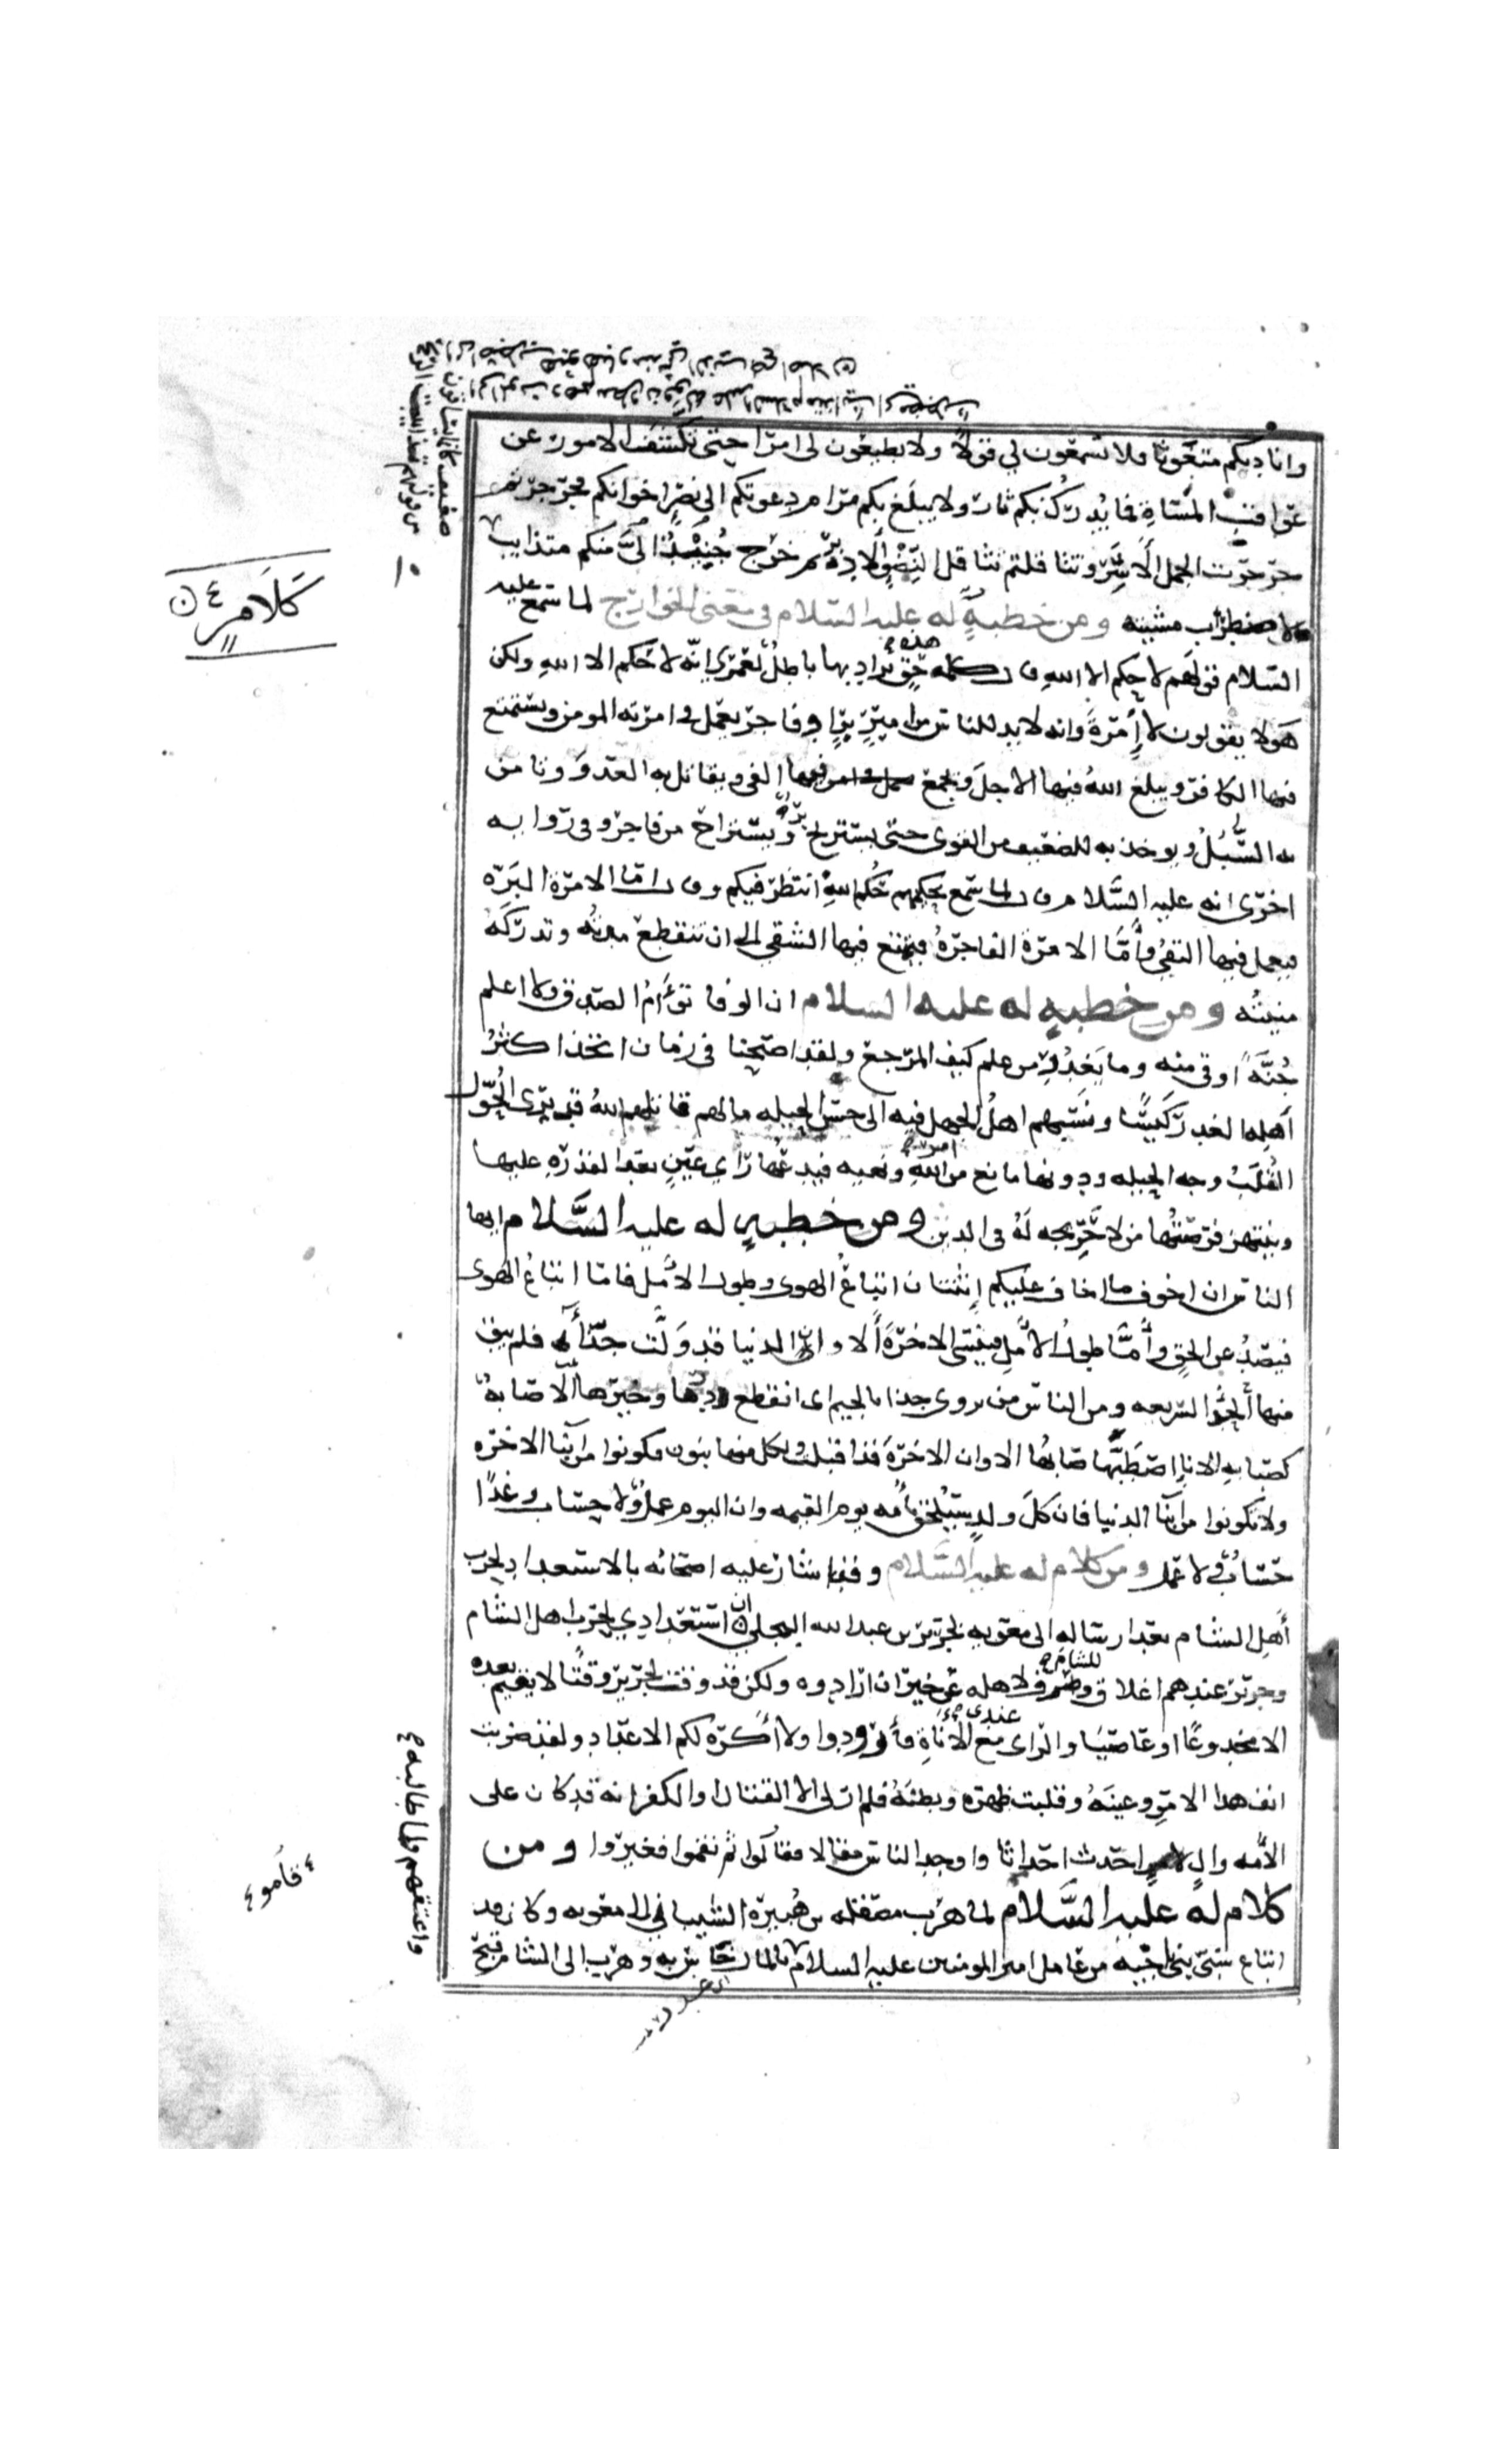 واناديكم متغوثا فلا تسمعون لي قولا ولا تطيعون لي امرا حتى تكشف الامور عن
عواقب المساة فما يدرك بكم ثار ولا يبلغ بكم مرام دعوتكم الى نصر اخوانكم فجرجرتم
جرجرة الجمل الاسر وتثاقلتم تثاقل النضو الادبر ثم خرج الي منكم جنيد متذايب
اى مضطرب مشيه ومن خطبة له عليه السلام في معنى الخوارج لما سمع عليه
السلام قولهم لا حكم الا لله قال كلمة حق يراد بها باطل لعمري انه لا حكم الا لله ولكن
هولا يقولون لا امرة وانه لا بد للناس من امير بر او فاجر يعمل في امرته المومن ويستمتع
فيها الكافر ويبلغ الله فيها الاجل ويجمع به الفي ويقاتل به العدو وتامن
به السبل ويوخذ به للضعيف من القوى حتى يستريح بر ويستراح من فاجر وفي رواية
اخرى انه عليه السلام قال لما سمع تحكيمهم حكم الله انتظر فيكم وقال اما الامرة البرة
فيعمل فيها التقي واما الامرة الفاجرة فيتمتع فيها الشقي الى ان تنقطع مدته وتدركه
منيته ومن خطبة له عليه السلام ان الوفا توأم الصدق ولا اعلم
جنة اوقى منه وما يغدر من علم كيف المرجع ولقد اصبحنا في زمان اتخذ اكثر
اهله الغدر كيسا ونسبهم اهل الجهل فيه الى حسن الحيله مالهم قاتلهم الله قد يرى الحول
القلب وجه الحيله ودونها مانع من امر الله ونهيه فيدعها راي عين بعد القدرة عليها
وينتهز فرصتها من لا حريجه له في الدين ومن خطبة له عليه السلام ايها
الناس ان اخوف ما اخاف عليكم اثنتان اتباع الهوى وطول الامل فاما اتباع الهوى
فيصد عن الحق واما طول الامل فينسي الاخرة الا وان الدنيا قد ولت حذا فلم يبق
منها الحذا السريعه ومن الناس من يروى جذا بالجيم اى انقطع درها وخيرها الا صبابة
كصبابة الانا اصطبها صابها الا وان الاخرة قد اقبلت ولكل منهما بنون فكونوا من ابنا الاخرة
ولا تكونوا من ابنا الدنيا فان كل ولد سيلحق بامه يوم القيمه وان اليوم عمل ولا حساب وغدا
حساب ولا عمل ومن كلام له عليه السلام وقد اشار عليه اصحابه بالاستعداد لحرب
اهل الشام بعد ارساله الى معوية لجرير بن عبد الله البجلي ان استعدادي لحرب اهل الشام
وجرير عندهم اغلاق للشام وصرف لاهله عن خير ان ارادوه ولكن قد وقت لجرير وقتا لا يقيم بعده
الا مخدوعا او عاصيا والراى عندي مع الاناة فأرودوا ولا أكره لكم الاعداد ولقد ضربت
انف هذا الامر وعينه وقلبت ظهره وبطنه فلم ار لي الا القتال او الكفر انه قد كان على
الأمه وال احدث احداثا واوجد الناس مقالا فقالوا ثم نقموا فغيروا ومن
كلام له عليه السلام لما هرب مصقلة بن هبيرة الشيباني الى معوية وكان قد
ابتاع سبي بني ناجيه من عامل امير المومنين عليه السلام بالمال خاس به وهرب الى الشام قبح
كلام